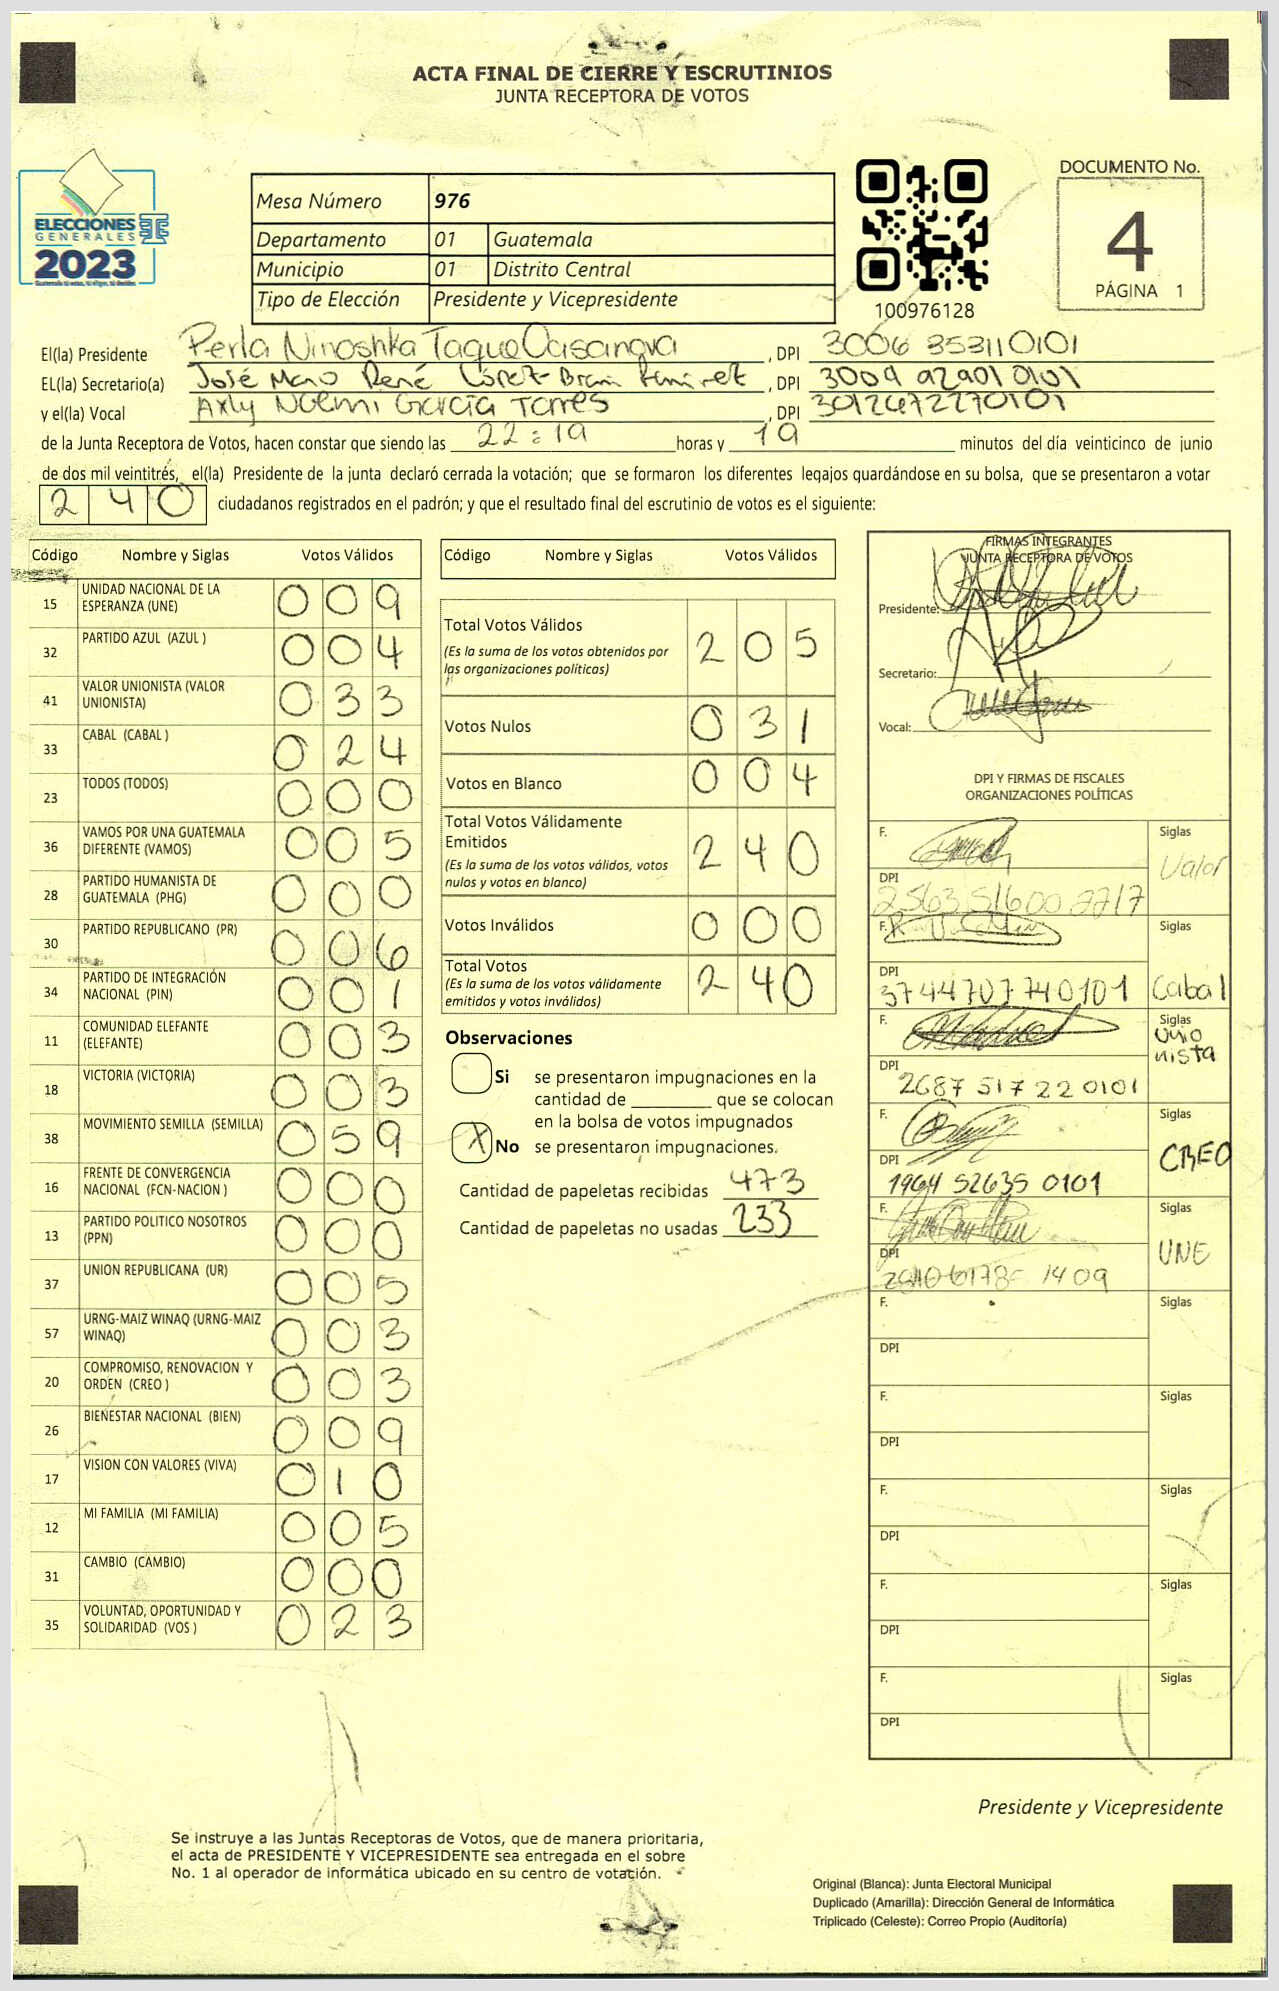 ACTA FINAL DE CIERRE Y ESCRUTINIOS
JUNTA RECEPTORA DE VOTOS
ELECCIONES
GENERALES
2023
Mesa Número 976
Departamento 01 Guatemala
Municipio 01 Distrito Central
Tipo de Elección Presidente y Vicepresidente
100976128
DOCUMENTO No.
4
PÁGINA 1
El(la) Presidente Perla Ninoshka Taque Casanova , DPI 3006 353110101
EL(la) Secretario(a) José René López , DPI 3009 929010101
y el(la) Vocal Axly Noemi García Torres , DPI 3012672270101
de la Junta Receptora de Votos, hacen constar que siendo las 22:19 horas y 19 minutos del día veinticinco de junio
de dos mil veintitrés, el(la) Presidente de la junta declaró cerrada la votación; que se formaron los diferentes legajos guardándose en su bolsa, que se presentaron a votar
240 ciudadanos registrados en el padrón; y que el resultado final del escrutinio de votos es el siguiente:
Código Nombre y Siglas Votos Válidos
15 UNIDAD NACIONAL DE LA ESPERANZA (UNE) 009
32 PARTIDO AZUL (AZUL ) 004
41 VALOR UNIONISTA (VALOR UNIONISTA) 033
33 CABAL (CABAL ) 024
23 TODOS (TODOS) 000
36 VAMOS POR UNA GUATEMALA DIFERENTE (VAMOS) 005
28 PARTIDO HUMANISTA DE GUATEMALA (PHG) 000
30 PARTIDO REPUBLICANO (PR) 006
34 PARTIDO DE INTEGRACIÓN NACIONAL (PIN) 001
11 COMUNIDAD ELEFANTE (ELEFANTE) 003
18 VICTORIA (VICTORIA) 003
38 MOVIMIENTO SEMILLA (SEMILLA) 059
16 FRENTE DE CONVERGENCIA NACIONAL (FCN-NACION ) 000
13 PARTIDO POLITICO NOSOTROS (PPN) 000
37 UNION REPUBLICANA (UR) 005
57 URNG-MAIZ WINAQ (URNG-MAIZ WINAQ) 003
20 COMPROMISO, RENOVACION Y ORDEN (CREO ) 003
26 BIENESTAR NACIONAL (BIEN) 009
17 VISION CON VALORES (VIVA) 010
12 MI FAMILIA (MI FAMILIA) 005
31 CAMBIO (CAMBIO) 000
35 VOLUNTAD, OPORTUNIDAD Y SOLIDARIDAD (VOS ) 023
Código Nombre y Siglas Votos Válidos
Total Votos Válidos 205
(Es la suma de los votos obtenidos por
las organizaciones políticas)
Votos Nulos 031
Votos en Blanco 004
Total Votos Válidamente
Emitidos 240
(Es la suma de los votos válidos, votos
nulos y votos en blanco)
Votos Inválidos 000
Total Votos 240
(Es la suma de los votos válidamente
emitidos y votos inválidos)
Observaciones
Si se presentaron impugnaciones en la
cantidad de ________ que se colocan
en la bolsa de votos impugnados
X No se presentaron impugnaciones.
Cantidad de papeletas recibidas 473
Cantidad de papeletas no usadas 233
FIRMAS INTEGRANTES
JUNTA RECEPTORA DE VOTOS
Presidente:
Secretario:
Vocal:
DPI Y FIRMAS DE FISCALES
ORGANIZACIONES POLÍTICAS
F. Siglas
Valor
DPI
2563 51600 2217
F. Siglas
DPI
3744707740101 Cabal
F. Siglas
Unio
nista
DPI
2687 51722 0101
F. Siglas
CREO
DPI
1964 52635 0101
F. Siglas
UNE
DPI
1409
F. Siglas
DPI
F. Siglas
DPI
F. Siglas
DPI
F. Siglas
DPI
F. Siglas
DPI
Presidente y Vicepresidente
Se instruye a las Juntas Receptoras de Votos, que de manera prioritaria,
el acta de PRESIDENTE Y VICEPRESIDENTE sea entregada en el sobre
No. 1 al operador de informática ubicado en su centro de votación.
Original (Blanca): Junta Electoral Municipal
Duplicado (Amarilla): Dirección General de Informática
Triplicado (Celeste): Correo Propio (Auditoría)